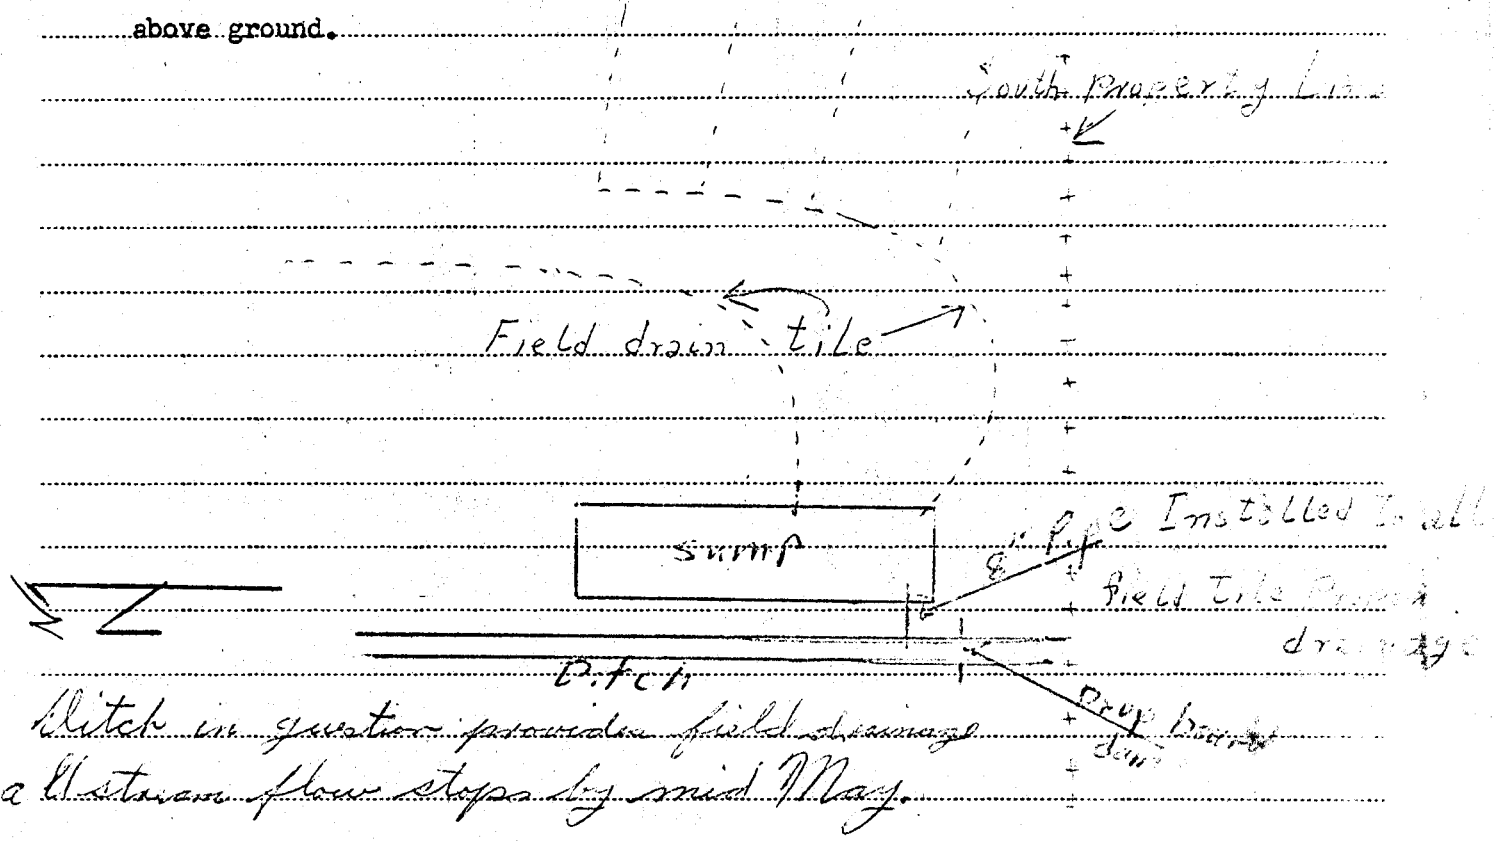 above ground.
South Property Line
Field drain tile
sump
8" Pipe Installed
field Tile
drainage
Ditch
Drop board
dam
Ditch in question provides field drainage
all stream flow stops by mid May.